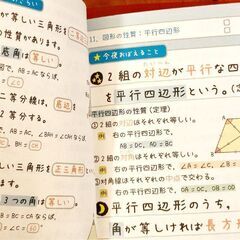 が等しい三角形を
ます。
底角は(等しい)
図で、AB=ACならば、
二等分線は、底辺を
AB=AC、∠BAH=∠CAH
ば、BH=CH
しい三角形を正三角形
ます。
3つの角は(等しい)
AB=BC=CAならば、
=∠B=∠C=60
11. 図形の性質:平行四辺形
★今夜おぼえること
2組の対辺が平行な四
を平行四辺形という。
平行四辺形の性質(定理)
①2組の対辺はそれぞれ等しい。
例 右の平行四辺形で、
AB=DC、AD=BC
②2組の対角はそれぞれ等しい。
例 右の平行四辺形で、∠A=∠C、∠B=
③対角線はそれぞれの中点で交わる。
例 右の平行四辺形で、OA=OC、OB=OD
平行四辺形のうち、
角が等しければ長方